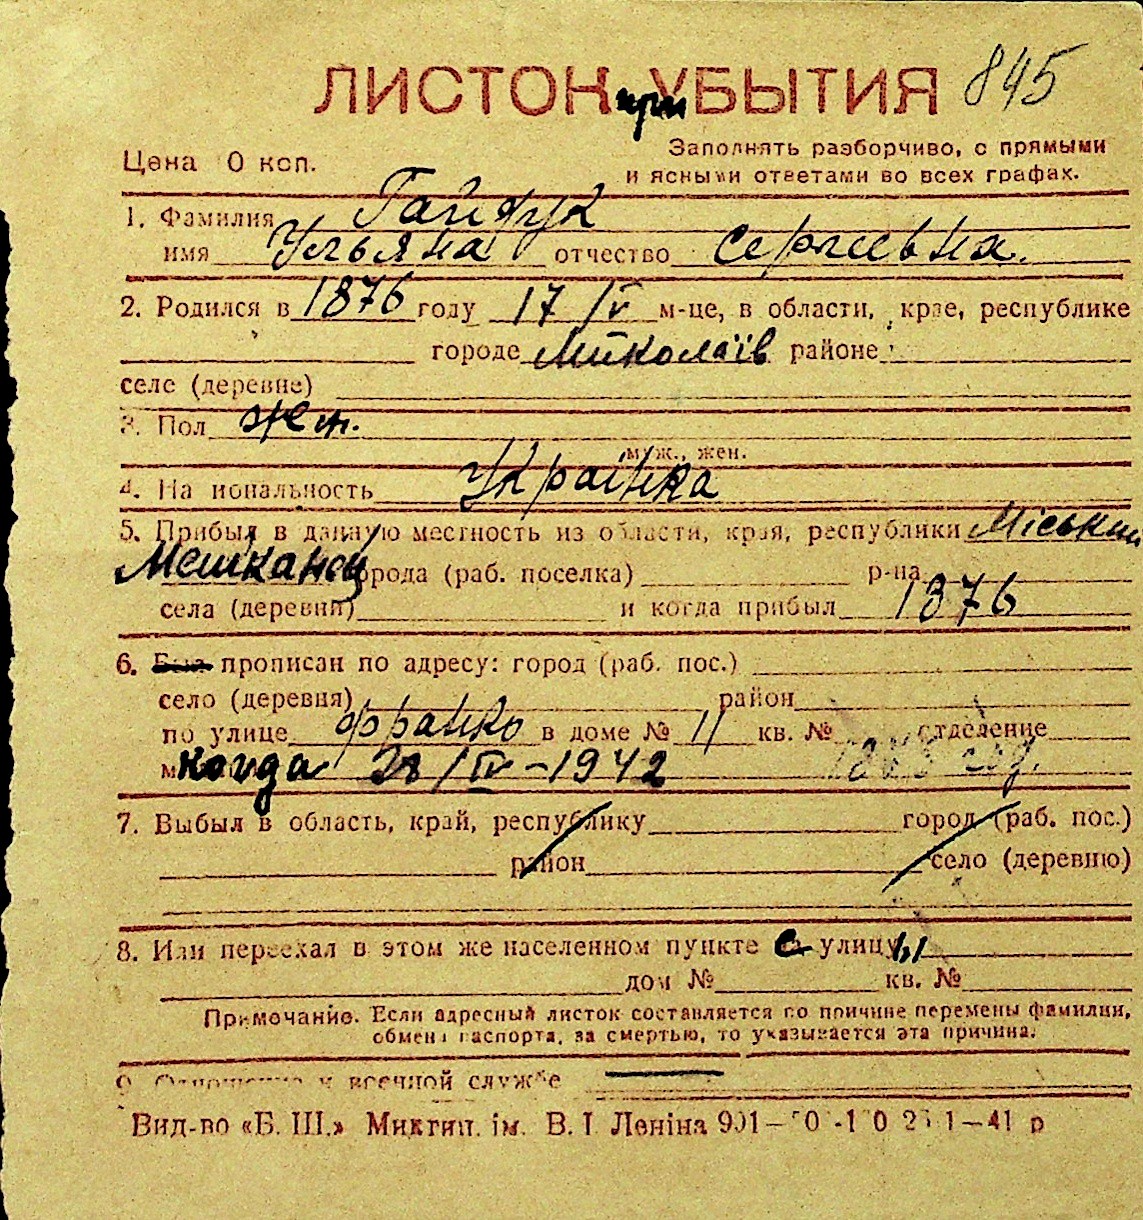 845
ЛИСТОК при УБЫТИЯ
Заполнять разборчиво, с прямыми
Цена 0 коп. и ясными ответами во всех графах.
1. Фамилия Гайдук
имя Ульяна отчество Сергиевна.
2. Родился в 1876 году 17/IV м-це, в области, крае, республике
городе Миколаїв районе
селе (деревне)
3. Пол жен.
муж., жен.
4. На иональность Українка
5. Прибыл в данную местность из области, края, республики Міський
Мешканец города (раб. поселка) р-на
села (деревни) и когда прибыл 1876
6. Был прописан по адресу: город (раб. пос.)
село (деревня) район
по улице Франко в доме № 11 кв. № отделение
когда 28/IV-1942 год.
7. Выбыл в область, край, республику город (раб. пос.)
район село (деревню)
8. Или переехал в этом же населенном пункте с улицы
дом № кв. №
Примечание. Если адресный листок составляется по причине перемены фамилии,
обмена паспорта, за смертью, то указывается эта причина.
9. Отношение к военной службе
Вид-во «Б. Ш.» Миктип. ім. В. І Леніна 41 р